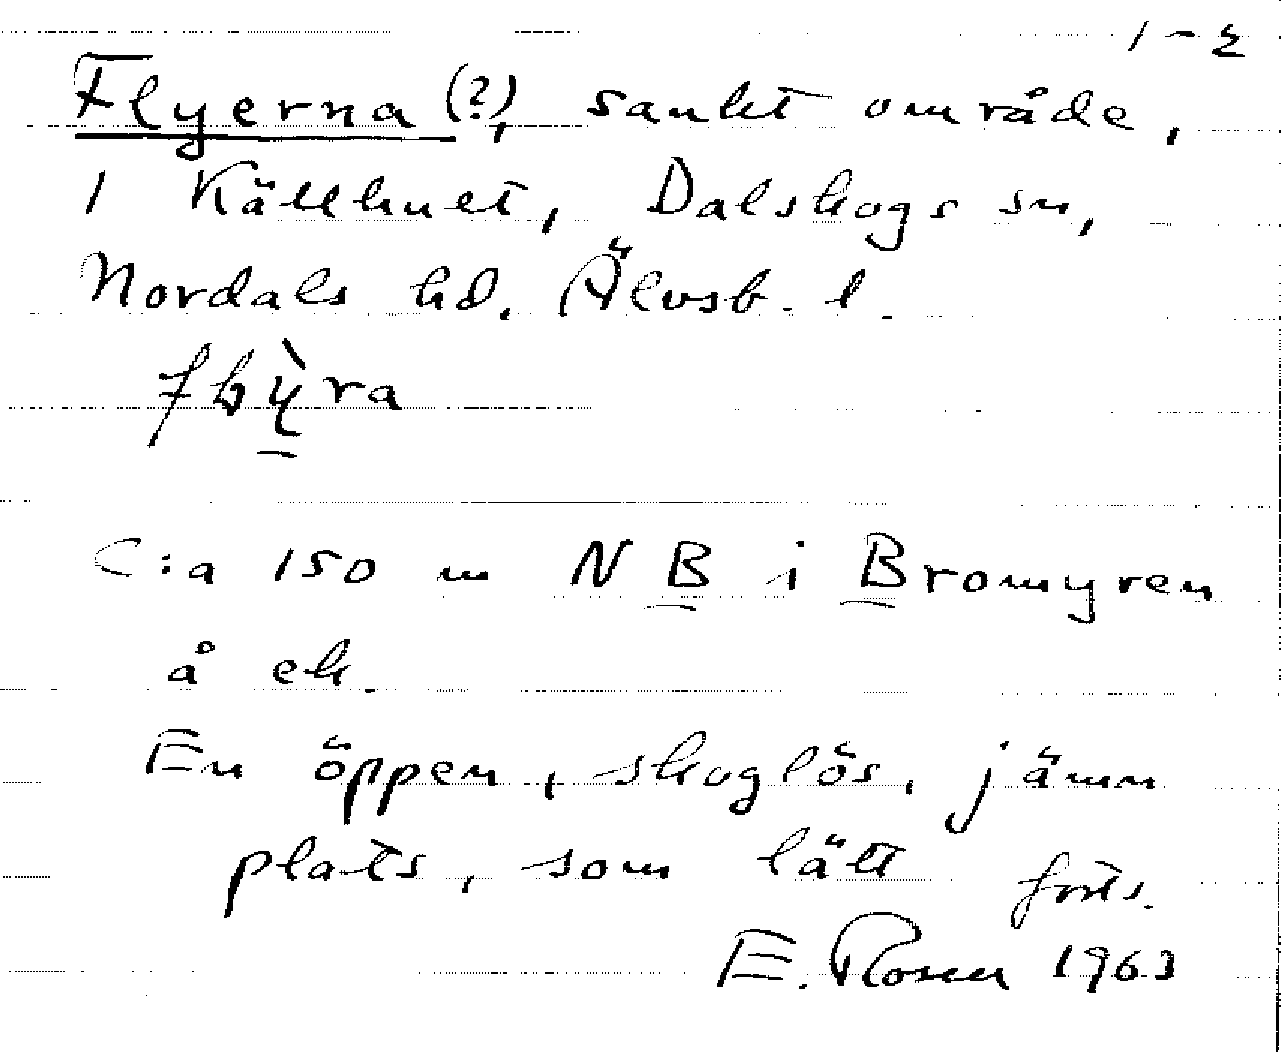 1-2
Flyerna (?), sankt område,
i Källhult, Dalskogs sn,
Nordals hd, Älvsb. l.
C:a 150 m N B i Bromyren
å ek.
En öppen, skoglös, jämn
plats, som lätt forts.
E. Rosen 1963